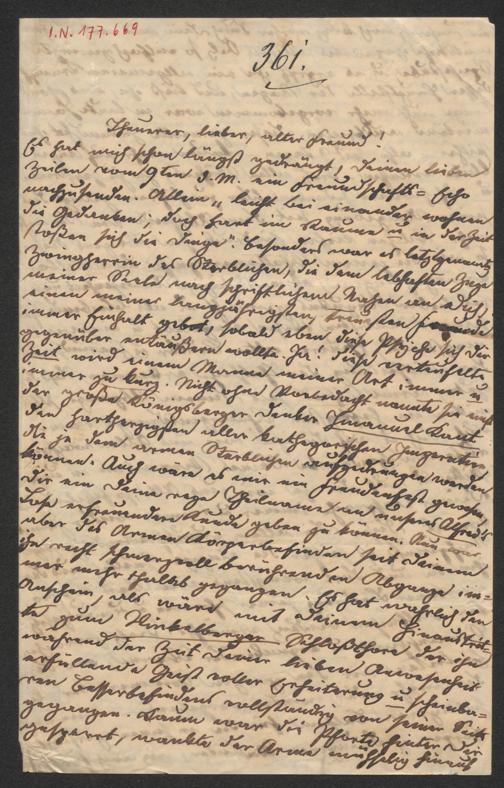 I.N. 177.669
361.
Theuerer, lieber, alter Freund!
Es hat mich schon längst gedrängt, Deinen lieben
Zeilen vom 9ten d. M. ein Freundschafts-Echo
nachzusenden. Allein „leicht bei einander wohnen
die Gedanken; doch hart im Raume u in der Zeit
stoßen sich die Dinge". Besonders war es letztgenannte
Zwingherrin des Sterblichen, die dem lebhaften Zuge
meiner Seele nach schriftlichem Nahen an Dich,
einen meiner langjährigsten, treusten Freunde
immer Einhalt gebot, sobald eben diese Psyche sich Dir
gegenüber entäußern wollte. Ja! diese verteufelte
Zeit wird einem Manne meiner Art immer u
immer zu kurz. Nicht ohne Vorbedacht nannte sie einst
der große Königsberger Denker Imanuel Kant
den hartherzigsten aller kathegorischen Imperative,
die je dem armen Sterblichen aufgedrungen werden
können. Auch wäre es mir ein Freudenfest gewesen,
Dir ein Deine rege Theilname an unsers Alfred's
Lose erfreuendere Kunde geben zu können. Nun
aber das Armen Körperbefinden seit Deinem
ihn recht schmerzvoll berührenden Abgange im-
mer mehr thalab gegangen. Es hat wahrlich den
Anschein, als wäre mit Deinem Hinaustrit-
te zum Winkelberger Schloßthore der ihn
während der Zeit Deiner lieben Anwesenheit
erfüllende Geist voller Erheiterung u scheinba-
ren Besserbefindens vollständig von seiner Seite
gegangen. Kaum war die Pforte hinter Dir
gesperrt, wankte der Arme mühselig hinauf